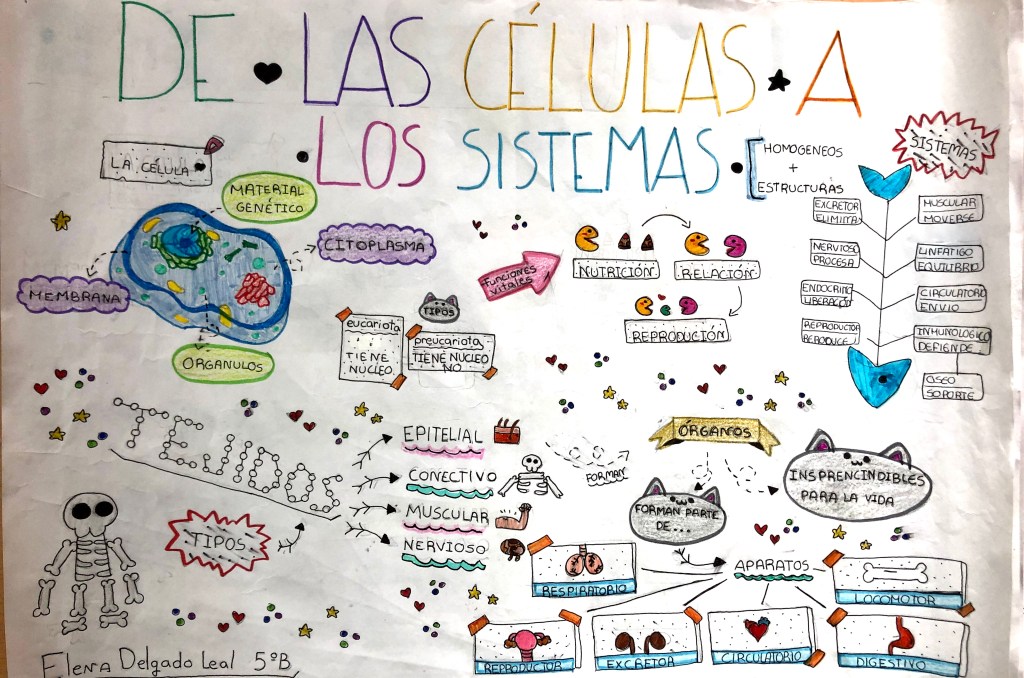 DE LAS CÉLULAS A
LOS SISTEMAS
HOMOGENEOS
+
ESTRUCTURAS
SISTEMAS
LA CÉLULA
MATERIAL
GENÉTICO
CITOPLASMA
MEMBRANA
ORGANULOS
TIPOS
eucariota
TIENE
NUCLEO
preucariota
TIENE NUCLEO
NO
funciones
vitales
NUTRICIÓN
RELACIÓN
REPRODUCIÓN
EXCRETOR
ELIMINA
MUSCULAR
MOVERSE
NERVIOSO
PROCESA
LINFATIGO
EQUILIBRIO
ENDOCRINO
LIBERACIÓN
CIRCULATORIO
ENVIO
REPRODUCTOR
REPRODUCE
INMUNOLOGICO
DEFIENDE
OSEO
SOPORTE
TEJIDOS
TIPOS
EPITELIAL
CONECTIVO
MUSCULAR
NERVIOSO
FORMAN
ÓRGANOS
FORMAN PARTE
DE...
INSPRENCINDIBLES
PARA LA VIDA
APARATOS
RESPIRATORIO
LOCOMOTOR
REPRODUCTOR
EXCRETOR
CIRCULATORIO
DIGESTIVO
Elena Delgado Leal 5ºB